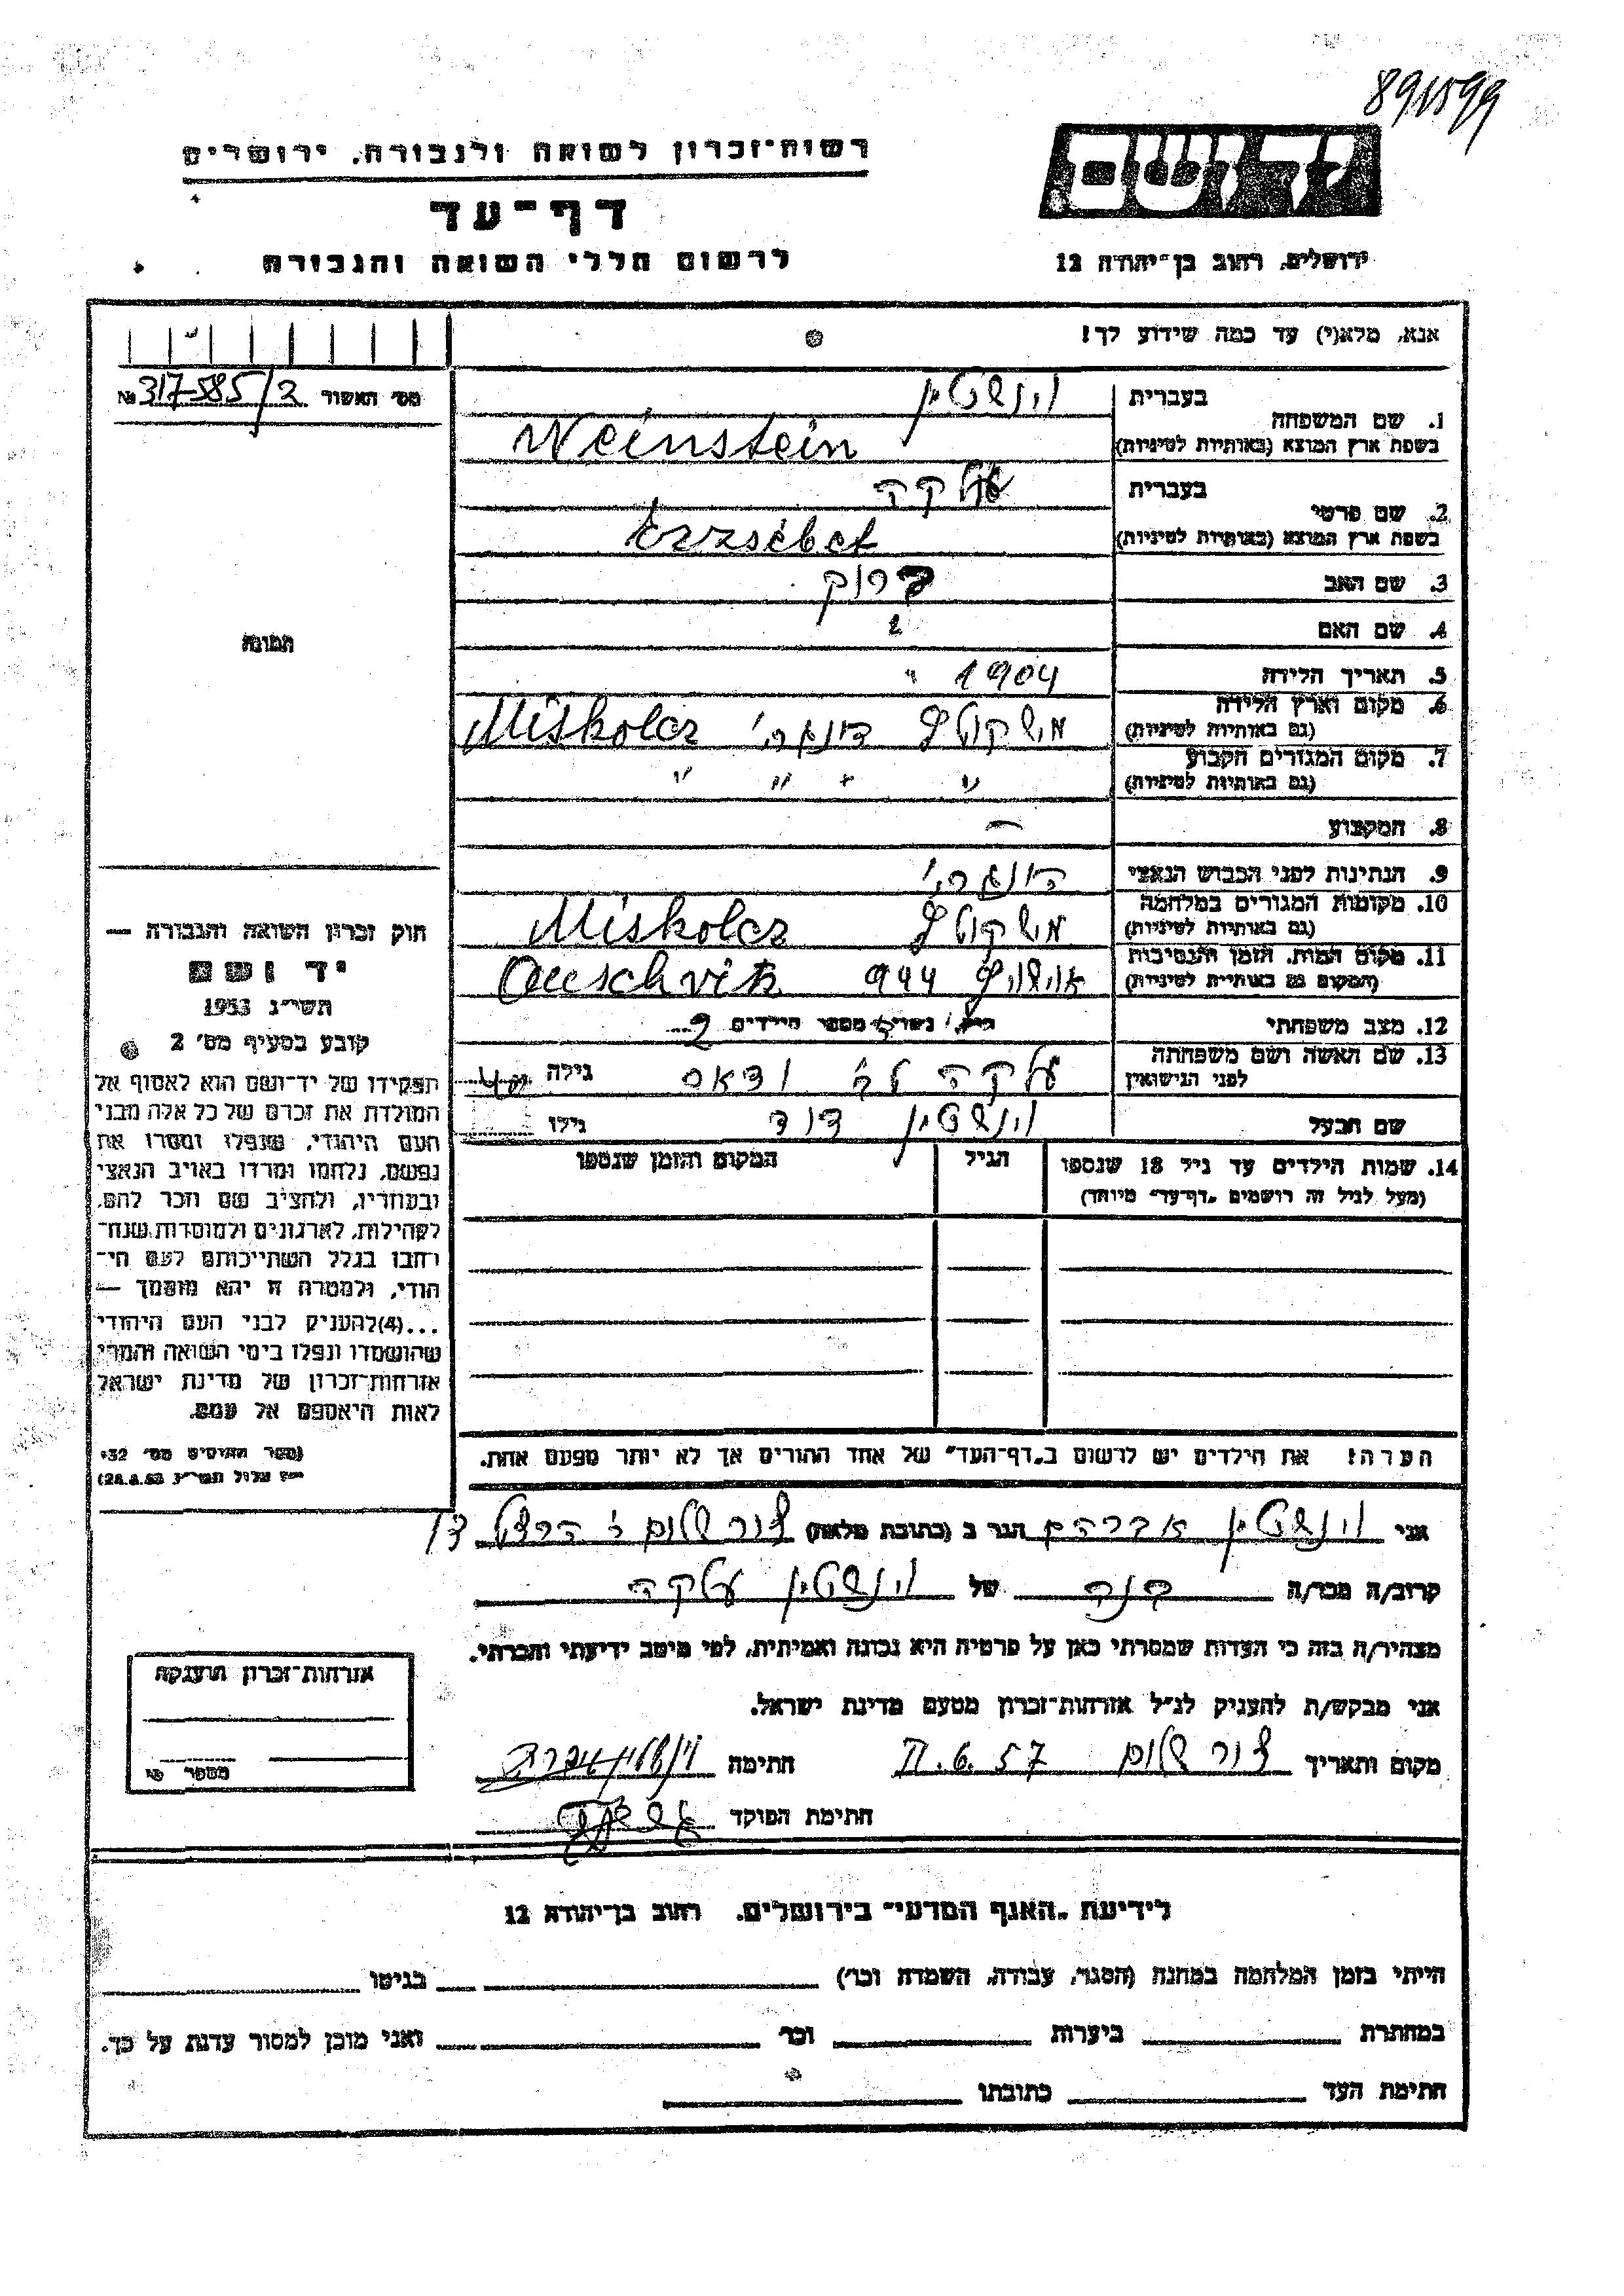 891599
רשות-זכרון לשואה ולגבורה, ירושלים
דף-עד
לרשום חללי השואה והגבורה
יד ושם
ירושלים, רחוב בן-יהודה 12
אנא, מלא(י) עד כמה שידוע לך!
מס' האשור 317585/2 №
1. שם המשפחה
בעברית וינשטין
בשפת ארץ המוצא (באותיות לטיניות) Weinstein
2. שם פרטי
בעברית עלקה
בשפת ארץ המוצא (באותיות לטיניות) Erzsébet
3. שם האב
4. שם האם
5. תאריך הלידה 1904
6. מקום וארץ הלידה
(גם באותיות לטיניות) מישקולץ Miskolcz
7. מקום המגורים הקבוע
(גם באותיות לטיניות) " " " "
8. המקצוע —
9. הנתינות לפני הכבוש הנאצי
10. מקומות המגורים במלחמה
(גם באותיות לטיניות) מישקולץ Miskolcz
11. מקום המות, הזמן והנסיבות
(המקום גם באותיות לטיניות) 944 Auschvitz
12. מצב משפחתי מספר הילדים 2
13. שם האשה ושם משפחתה
לפני הנישואין עלקה גילה 40
שם הבעל וינשטין דוד גילו
14. שמות הילדים עד גיל 18 שנספו הגיל המקום והזמן שנספו
(מעל לגיל זה רושמים "דף-עד" מיוחד)
הערה! את הילדים יש לרשום ב"דף-העד" של אחד ההורים אך לא יותר מפעם אחת.
תמונה
חוק זכרון השואה והגבורה —
יד ושם
תשי"ג 1953
קובע בסעיף מס' 2
תפקידו של יד-ושם הוא לאסוף אל
המולדת את זכרם של כל אלה מבני
העם היהודי, שנפלו ומסרו את
נפשם, נלחמו ומרדו באויב הנאצי
ובעוזריו, ולהציב שם וזכר להם,
לקהילות, לארגונים ולמוסדות שנח-
רבו בגלל השתייכותם לעם הי-
הודי, ולמטרה זו יהא מוסמך —
...(4) להעניק לבני העם היהודי
שהושמדו ונפלו בימי השואה והמרי
אזרחות-זכרון של מדינת ישראל
לאות היאספם אל עמם.
(ספר החוקים מס' 132
אני וינשטין אברהם הגר ב (כתובת מלאה) צור שלום
קרוב/ה מכר/ה בנה של וינשטין עלקה
מצהיר/ה בזה כי העדות שמסרתי כאן על פרטיה היא נכונה ואמיתית, לפי מיטב ידיעתי והכרתי.
אני מבקש/ת להעניק לנ"ל אזרחות-זכרון מטעם מדינת ישראל.
מקום ותאריך צור שלום 11.6.57 חתימה
חתימת הפוקד
אזרחות-זכרון הוענקה
מספר №
לידיעת "האגף המדעי" בירושלים, רחוב בן-יהודה 12
הייתי בזמן המלחמה במחנה (הסגר, עבודה, השמדה וכו') בגיטו
במחתרת ביערות וכו' ואני מוכן למסור עדות על כך.
חתימת העד כתובתו